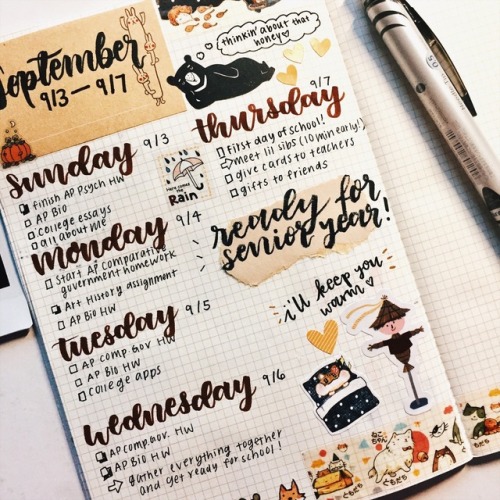 September
9/3 — 9/7
thinkin' about that
honey
sunday 9/3
finish AP Psych HW
AP Bio
college essays
all about me
Rain
monday 9/4
start AP comparative
government homework
Art History assignment
AP Bio HW
tuesday 9/5
AP comp. Gov HW
AP Bio HW
college apps
wednesday 9/6
AP comp. gov. HW
AP Bio HW
gather everything together
and get ready for school!
thursday 9/7
first day of school!
meet lil sibs (10 min early!)
give cards to teachers
gifts to friends
ready for
senior year!
i'll keep you
warm
ともだち